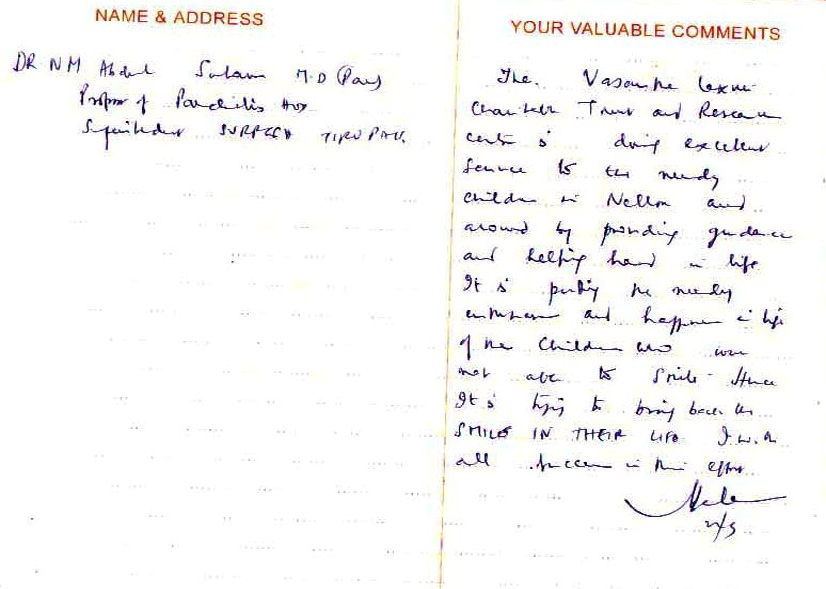 NAME & ADDRESS
DR NM Abdul Salam M.D (Paed)
Professor of Paediatrics
Superintendent TIRUPATI
YOUR VALUABLE COMMENTS
The Vasantha Laxmi
Charitable Trust and Research
centre is doing excellent
service to the needy
children in Nellore and
around by providing guidance
and helping hand in life
It is putting the needy
enthusiasm and happiness in life
of the Children who were
not able to smile. Hence
It is trying to bring back the
SMILE IN THEIR LIFE I wish
all success in their effort